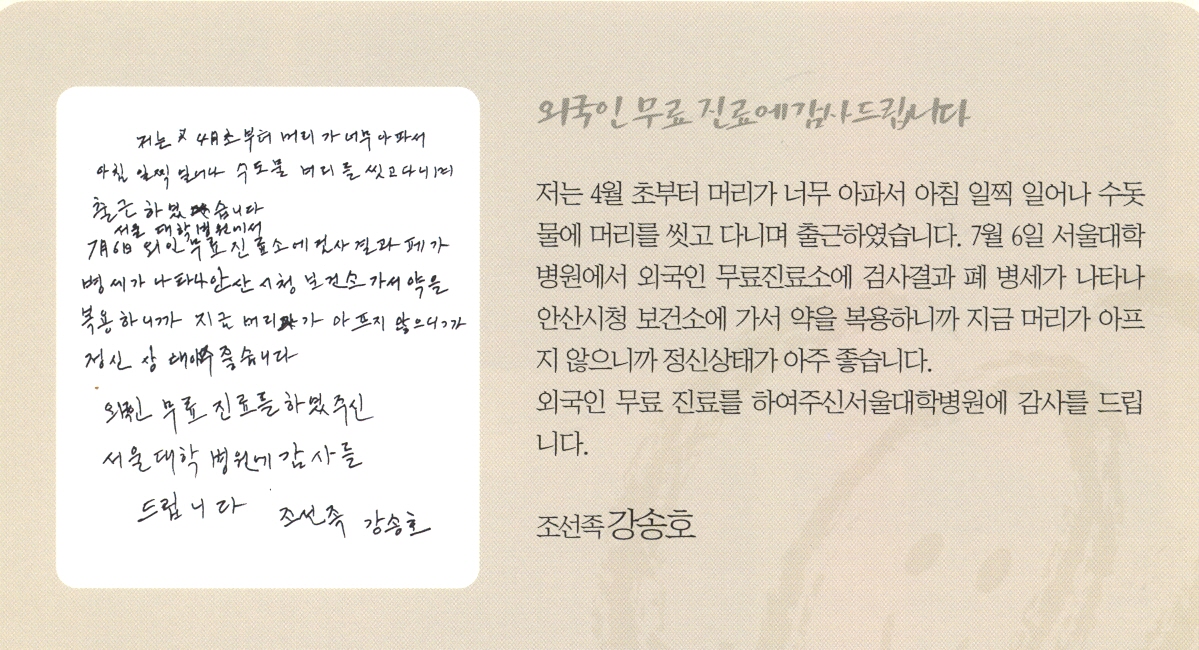 저는 4月초부터 머리가 너무 아파서
아침 일찍 일어나 수도물 머리를 씻고 다니며
출근하였습니다
서울 대학병원에서
7月6日 외인 무료 진료소에 검사결과 폐가
병세가 나타나 안산시청 보건소 가서 약을
복용하니까 지금 머리가 아프지 않으니까
정신 상태 아주 좋습니다
외국인 무료 진료를 하였주신
서울대학 병원에 감사를
드립니다 조선족 강송호
외국인 무료 진료에 감사드립니다
저는 4월 초부터 머리가 너무 아파서 아침 일찍 일어나 수돗
물에 머리를 씻고 다니며 출근하였습니다. 7월 6일 서울대학
병원에서 외국인 무료진료소에 검사결과 폐 병세가 나타나
안산시청 보건소에 가서 약을 복용하니까 지금 머리가 아프
지 않으니까 정신상태가 아주 좋습니다.
외국인 무료 진료를 하여주신서울대학병원에 감사를 드립
니다.
조선족 강송호